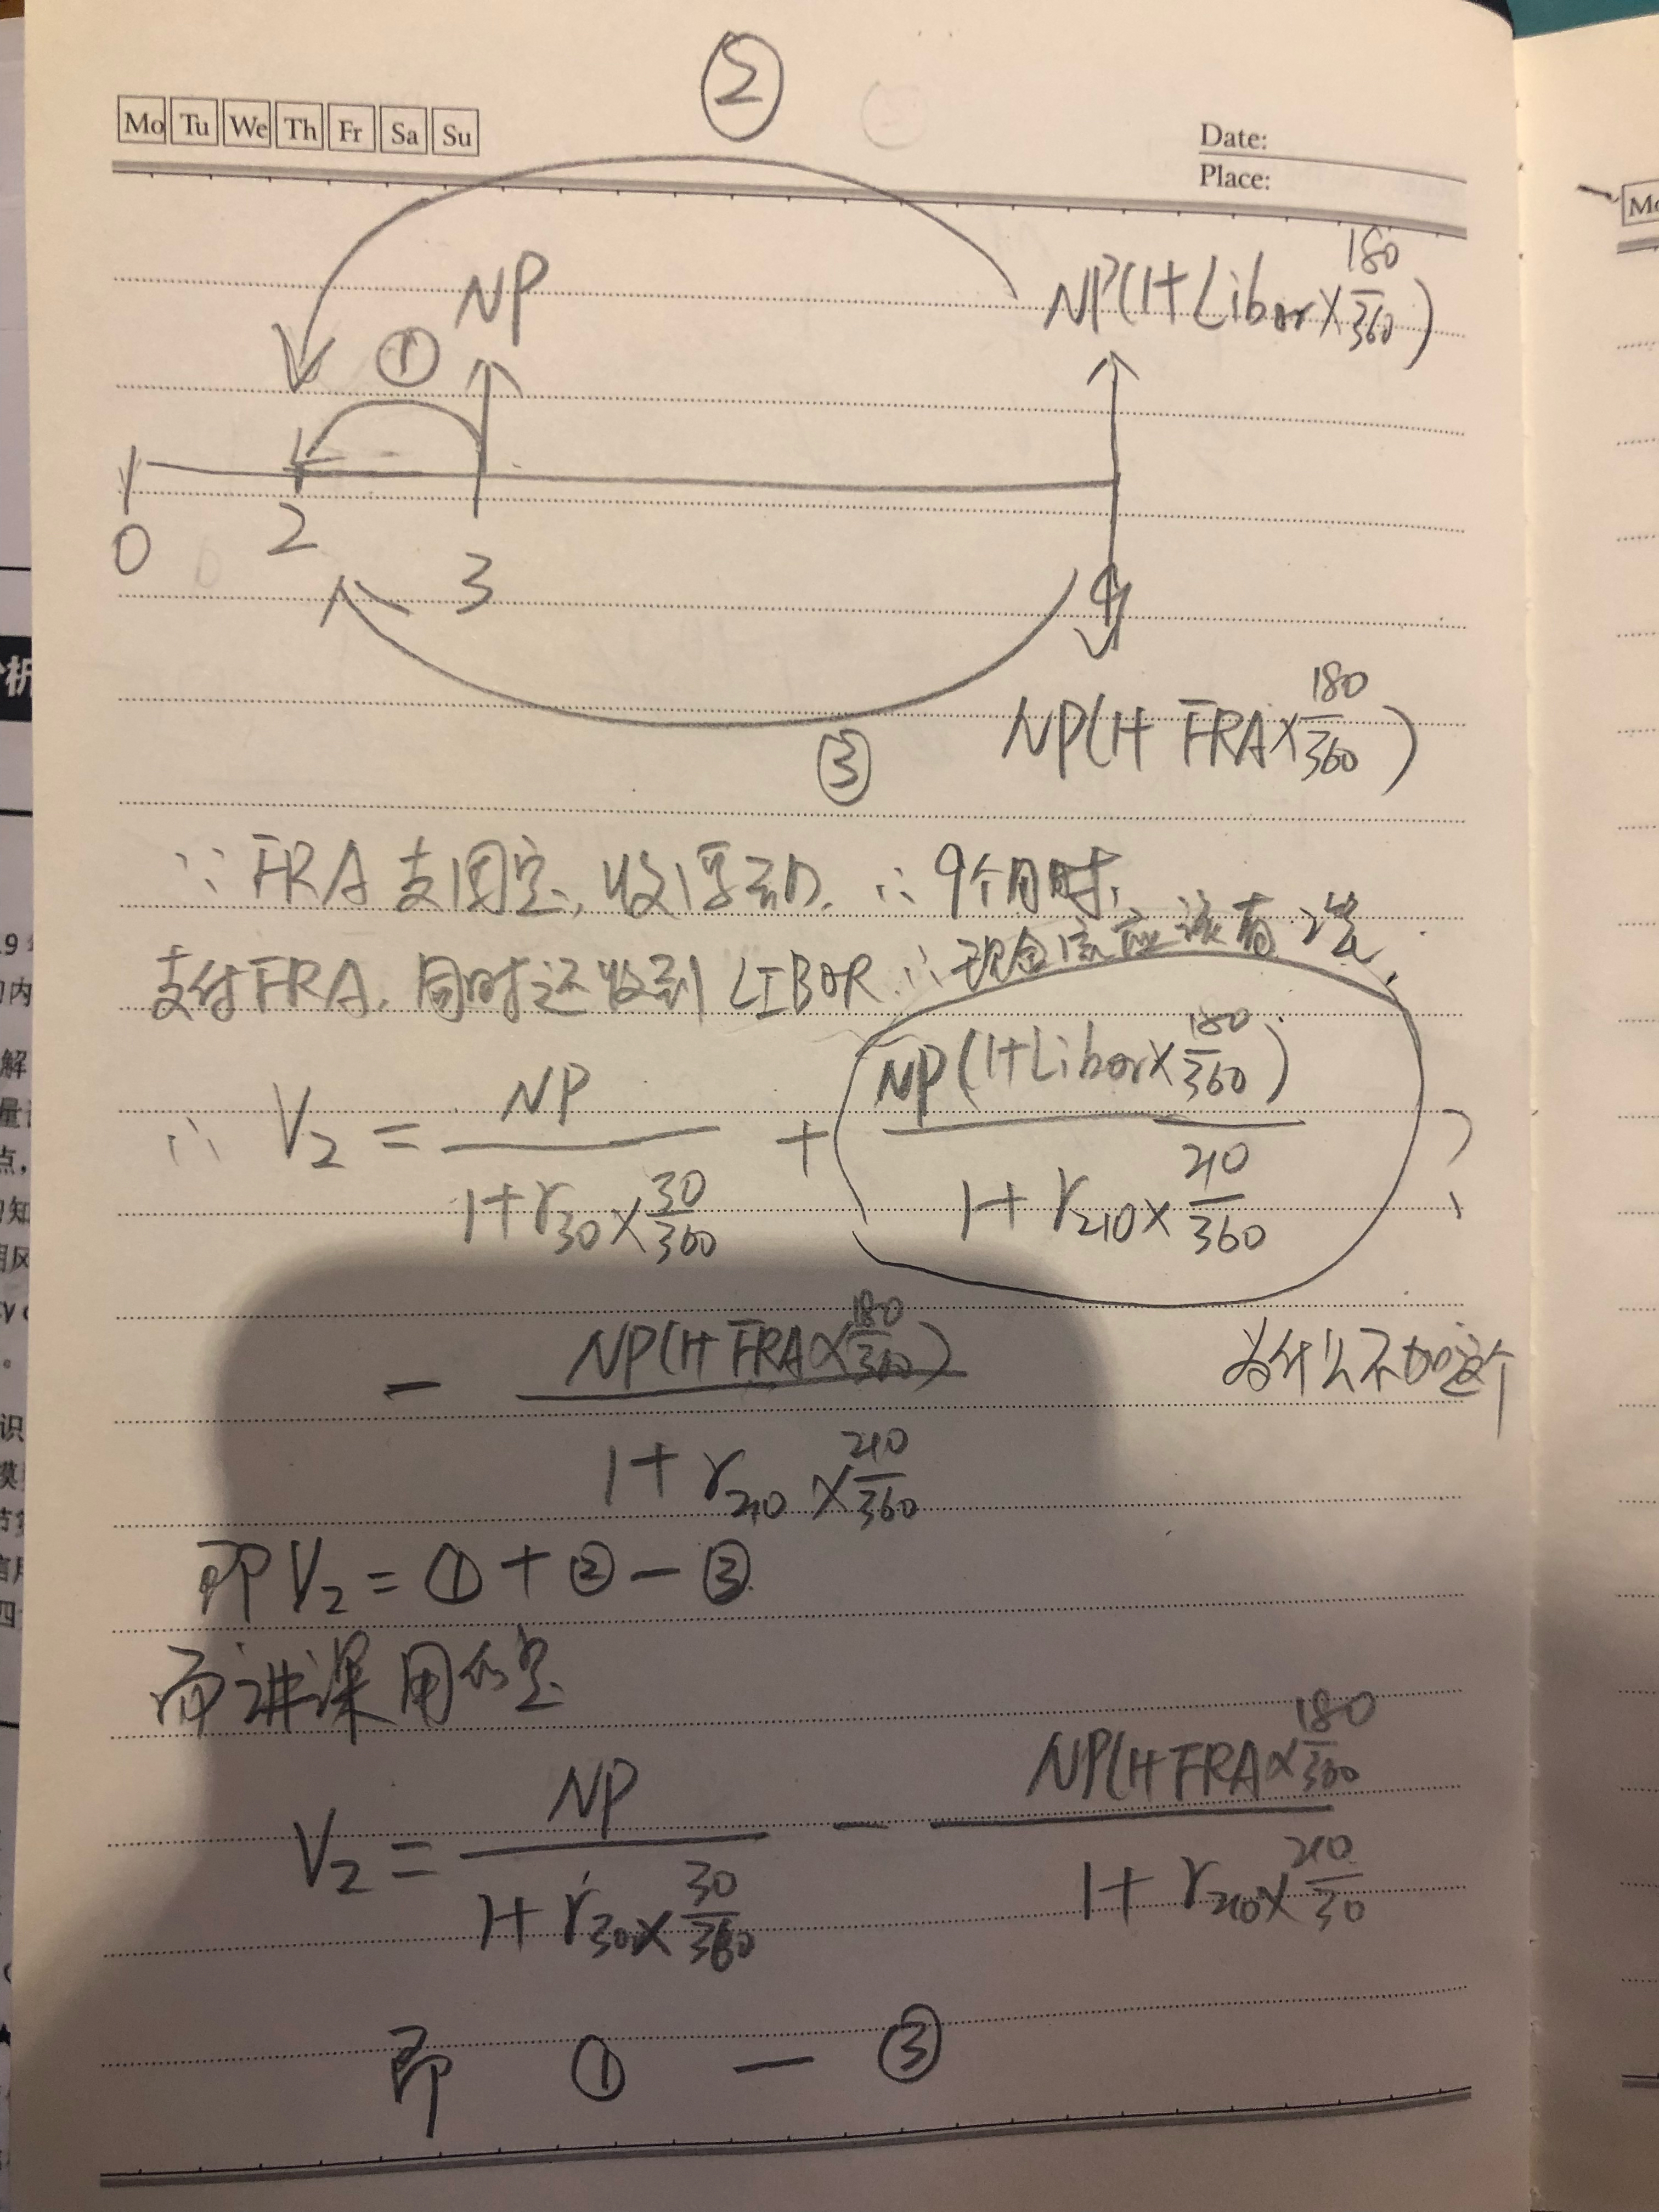 ②
Mo Tu We Th Fr Sa Su
Date:
Place:
Mo
NP
NP(1+Libor×180/360)
①
0 2 3 9
NP(1+FRA×180/360)
③
∵ FRA 支固定, 收浮动. ∴ 9个月时,
支付FRA, 同时还收到 LIBOR ∴ 现金流应该有2笔.
∴ V₂ = NP/(1+r₃₀×30/360) + NP(1+Libor×180/360)/(1+r₂₁₀×210/360)
- NP(1+FRA×180/360)/(1+r₂₁₀×210/360)
为什么不加这个
?
即V₂ = ① + ② - ③
而讲课用的是
V₂ = NP/(1+r₃₀×30/360) - NP(1+FRA×180/360)/(1+r₂₁₀×210/30)
即 ① - ③